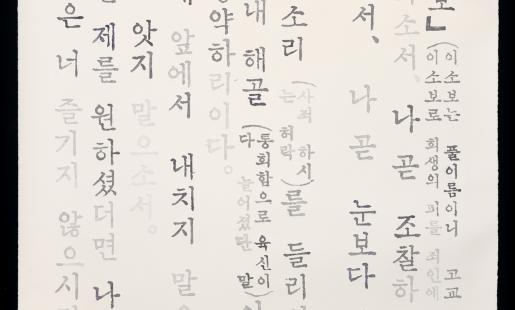 」(이소보는 풀이름이니 고교
이소보로 희생의 피를 죄인에
소서、 나 곧 조찰하
서、 나 곧 눈보다
소리 (사죄 하시
는 허락 )를 들리
내 해골 (통회함으로 육신이
다 늘어졌단 말)
약하리이다。
앞에서 내치지 말
앗지 말으소서。
제를 원하셨더면 나
은 너 즐기지 않으시